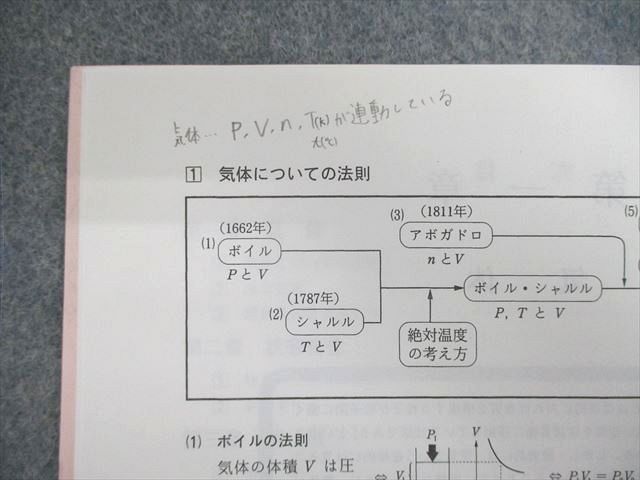 気体… P, V, n, T(K)が連動している
t(℃)
1 気体についての法則
(1662年)
(1) ボイル
PとV
(1787年)
(2) シャルル
TとV
(3) (1811年)
アボガドロ
nとV
(5)
ボイル・シャルル
P, TとV
絶対温度
の考え方
(1) ボイルの法則
気体の体積 V は圧
P₁
V
⇔ V₁
⇔ P₁V₁ = P₂V₂
第一章